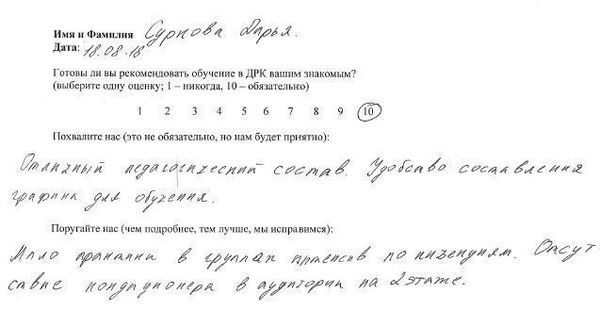 Имя и Фамилия Суркова Дарья.
Дата: 18.08.18
Готовы ли вы рекомендовать обучение в ДРК вашим знакомым?
(выберите одну оценку; 1 – никогда, 10 – обязательно)
1 2 3 4 5 6 7 8 9 10
Похвалите нас (это не обязательно, но нам будет приятно):
Отличный педагогический состав. Удобство составления
графика для обучения.
Поругайте нас (чем подробнее, тем лучше, мы исправимся):
Мало практики в группах интенсив по Отсут
ствие кондиционера в аудитории на 2 этаже.